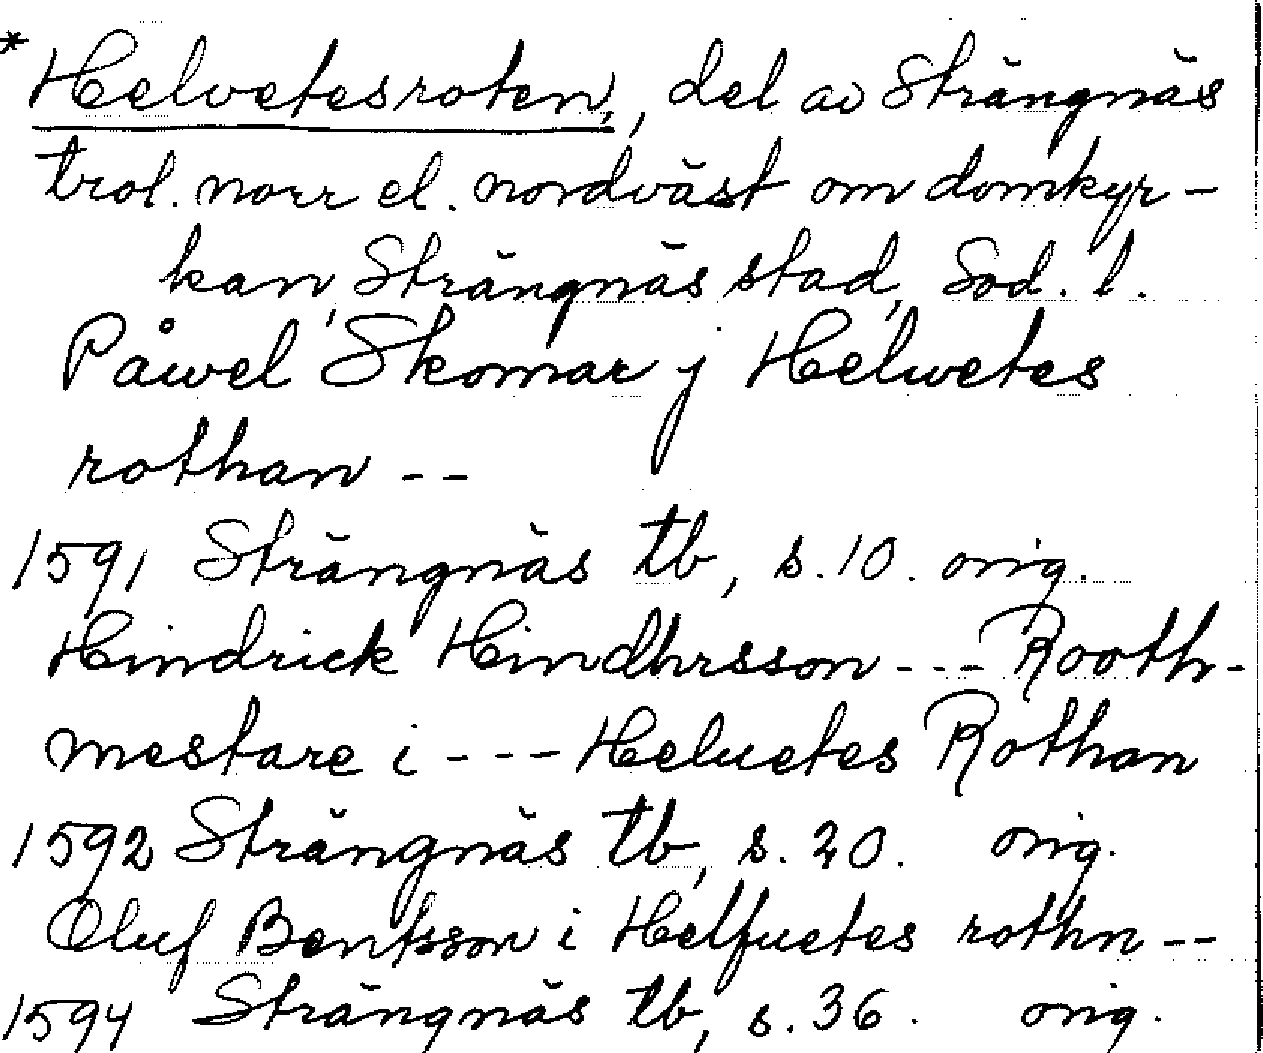 * Helvetesroten, del av Strängnäs
trol. norr el. nordväst om domkyr-
kan, Strängnäs stad, Söd. l.
Påwel Skomar j Helwetes
rothan --
1591 Strängnäs tb, s. 10. orig.
Hindrick Hindhrsson --- Rooth-
mestare i --- Heluetes Rothan
1592 Strängnäs tb, s. 20. orig.
Oluf Bentsson i Helfuetes rothn --
1594 Strängnäs tb, s. 36. orig.